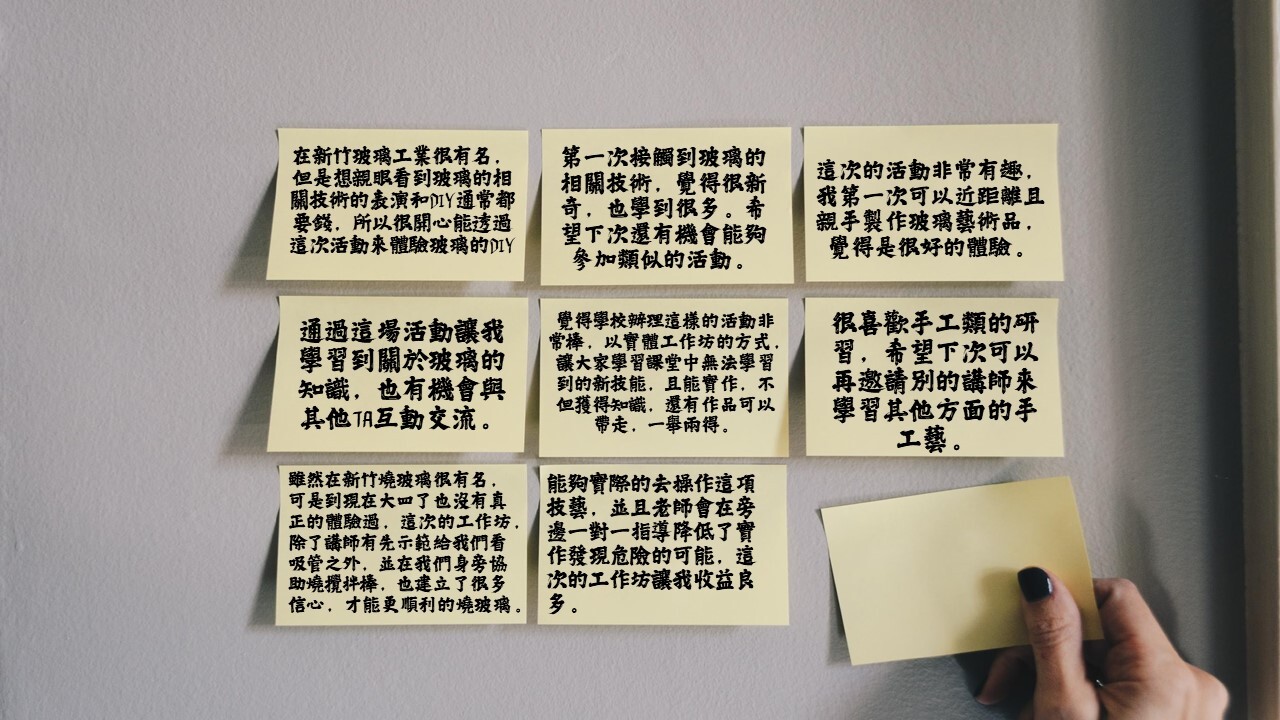 在新竹玻璃工業很有名，
但是想親眼看到玻璃的相
關技術的表演和DIY通常都
要錢，所以很開心能透過
這次活動來體驗玻璃的DIY
第一次接觸到玻璃的
相關技術，覺得很新
奇，也學到很多。希
望下次還有機會能夠
參加類似的活動。
這次的活動非常有趣，
我第一次可以近距離且
親手製作玻璃藝術品，
覺得是很好的體驗。
通過這場活動讓我
學習到關於玻璃的
知識，也有機會與
其他TA互動交流。
覺得學校辦理這樣的活動非
常棒，以實體工作坊的方式，
讓大家學習課堂中無法學習
到的新技能，且能實作，不
但獲得知識，還有作品可以
帶走，一舉兩得。
很喜歡手工類的研
習，希望下次可以
再邀請別的講師來
學習其他方面的手
工藝。
雖然在新竹燒玻璃很有名，
可是到現在大四了也沒有真
正的體驗過，這次的工作坊，
除了講師有先示範給我們看
吸管之外，並在我們身旁協
助燒攪拌棒，也建立了很多
信心，才能更順利的燒玻璃。
能夠實際的去操作這項
技藝，並且老師會在旁
邊一對一指導降低了實
作發現危險的可能，這
次的工作坊讓我收益良
多。